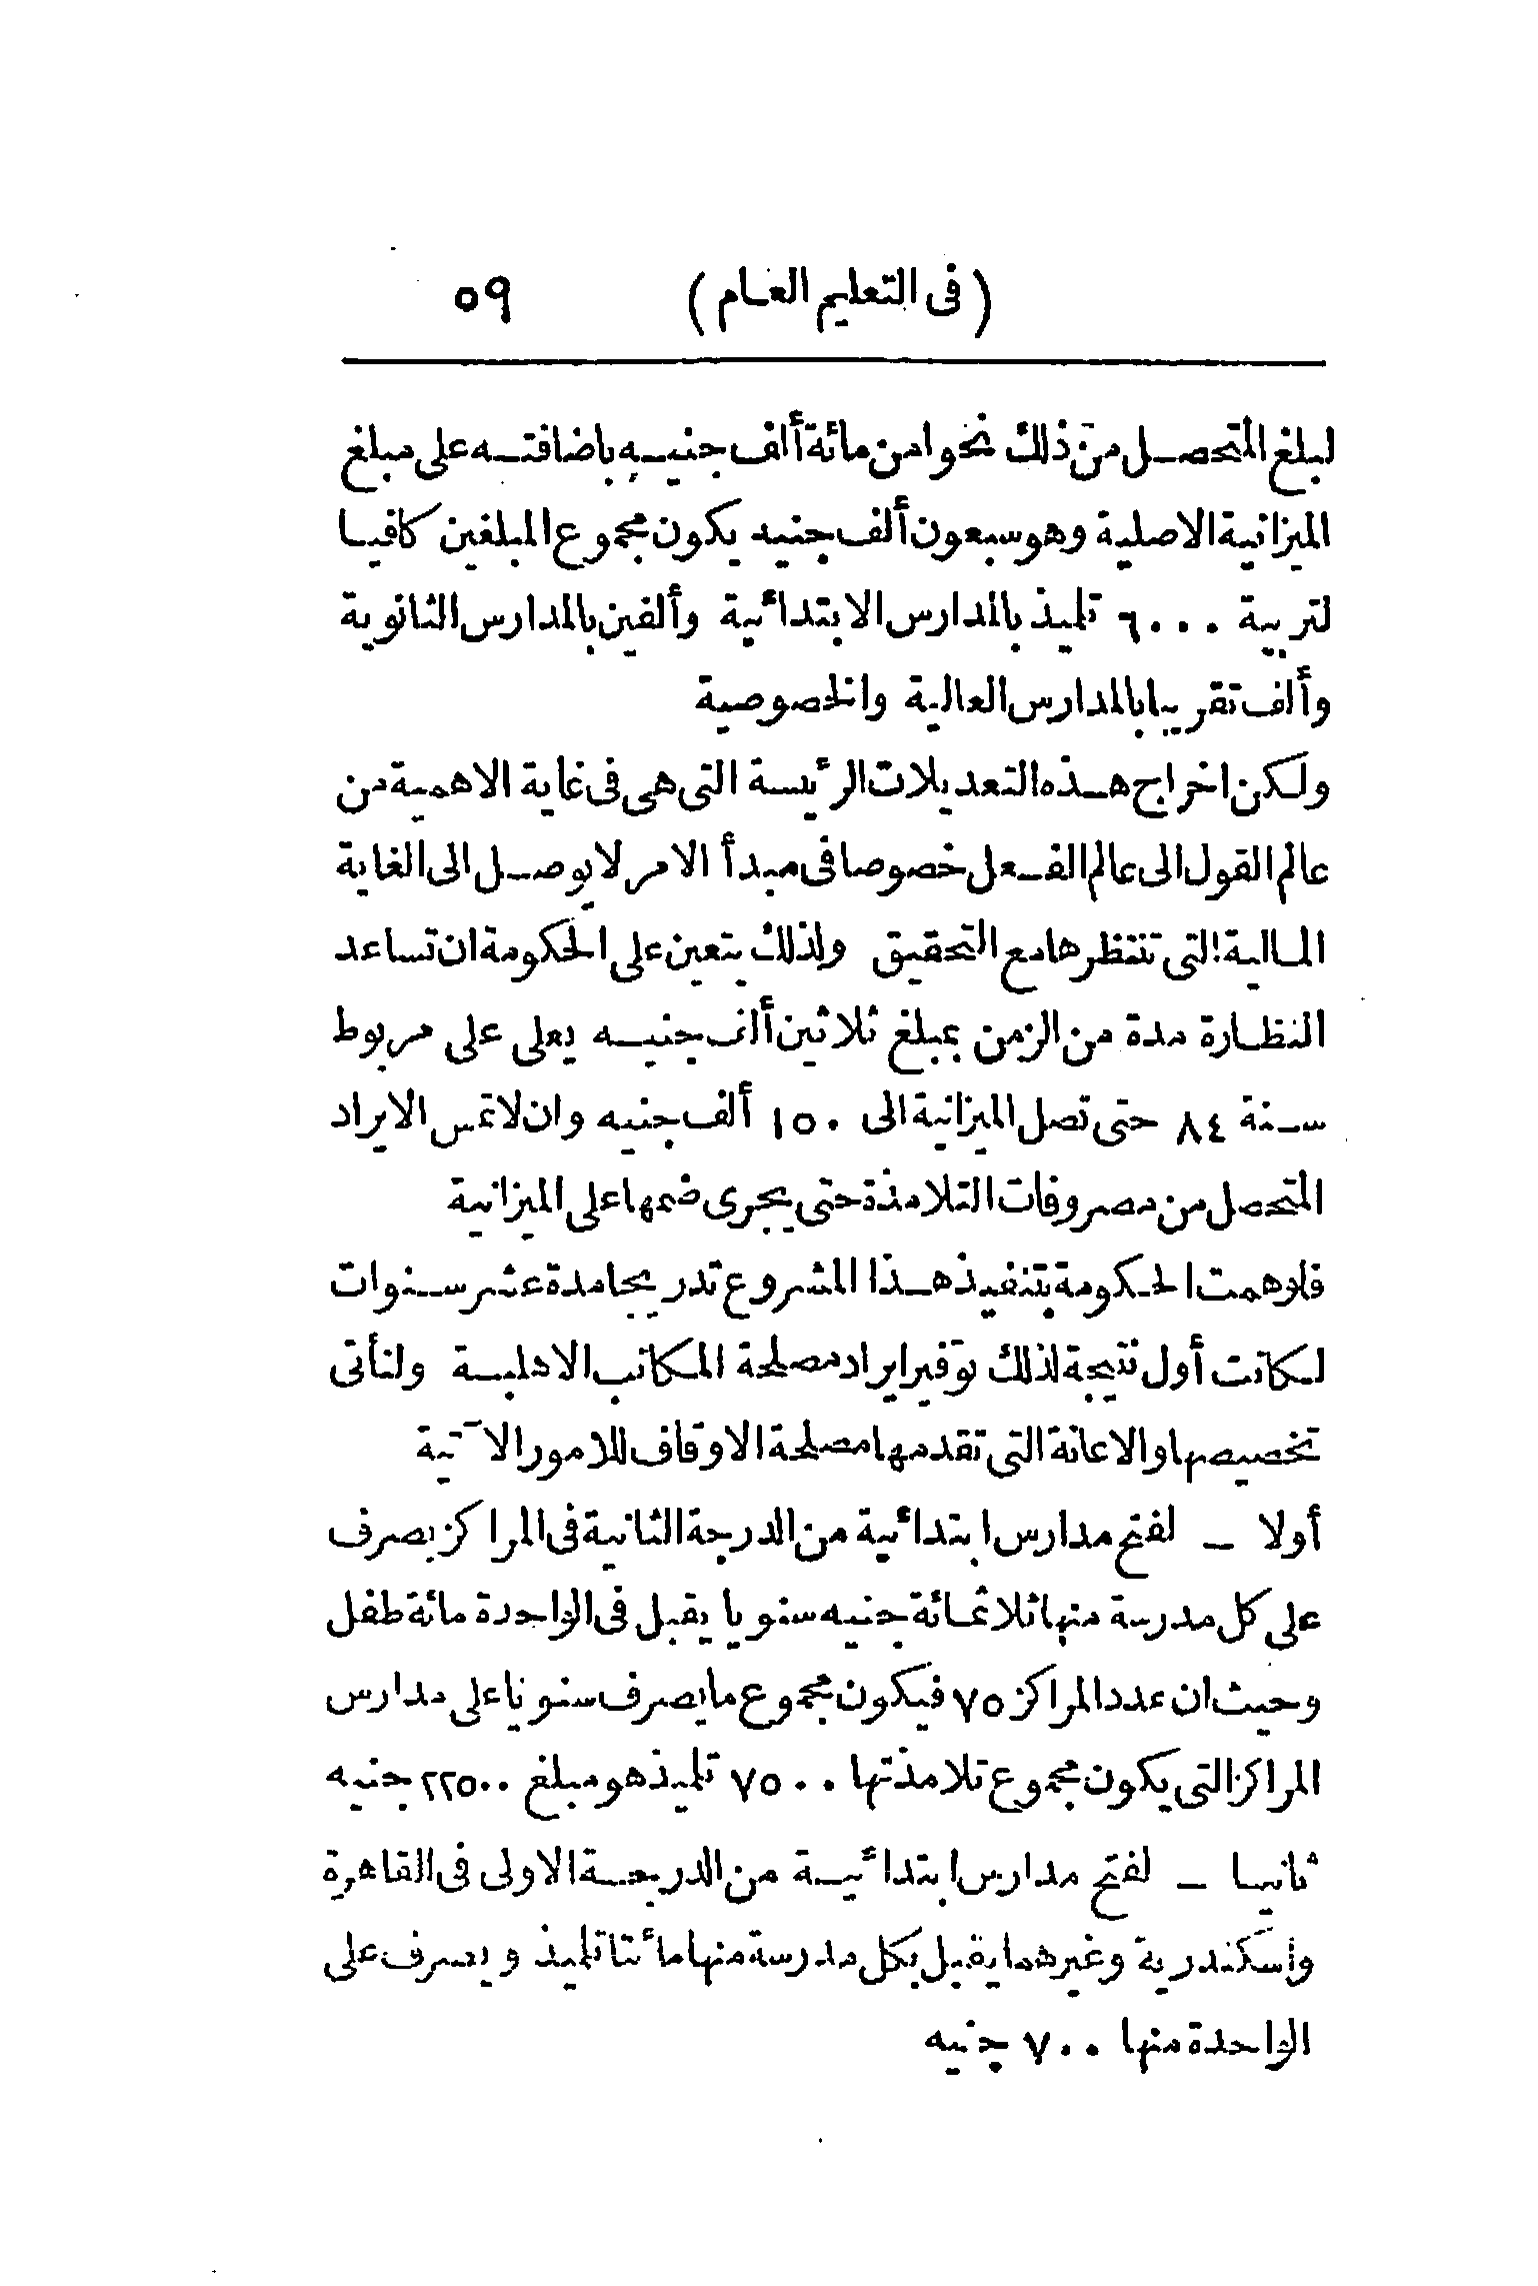 (فى التعليم العام) ٥٩
لبلغ المتحصل من ذلك نحوا من مائة ألف جنيه باضافته على مبلغ
الميزانية الاصلية وهو سبعون ألف جنيه يكون مجموع المبلغين كافيا
لتربية ٦٠٠٠ تلميذ بالمدارس الابتدائية وألفين بالمدارس الثانوية
وألف تقريبا بالمدارس العالية والخصوصية
ولكن اخراج هذه التعديلات الرئيسة التى هى فى غاية الاهمية من
عالم القول الى عالم الفعل خصوصا فى مبدأ الامر لا يوصل الى الغاية
المالية التى تنتظرها مع التحقيق ولذلك يتعين على الحكومة ان تساعد
النظارة مدة من الزمن بمبلغ ثلاثين ألف جنيه يعلى على مربوط
سنة ٨٤ حتى تصل الميزانية الى ١٥٠ ألف جنيه وان لا تمس الايراد
المتحصل من مصروفات التلامذة حتى يجرى ضمها على الميزانية
فلو همت الحكومة بتنفيذ هذا المشروع تدريجا مدة عشر سنوات
لكانت أول نتيجة لذلك توفير ايراد مصلحة المكاتب الاهلية ولنأتى
تخصيصها والاعانة التى تقدمها مصلحة الاوقاف للامور الآتية
أولا - لفتح مدارس ابتدائية من الدرجة الثانية فى المراكز يصرف
على كل مدرسة منها ثلاثمائة جنيه سنويا يقبل فى الواحدة مائة طفل
وحيث ان عدد المراكز ٧٥ فيكون مجموع ما يصرف سنويا على مدارس
المراكز التى يكون مجموع تلامذتها ٧٥٠٠ تلميذ هو مبلغ ٢٢٥٠٠ جنيه
ثانيا - لفتح مدارس ابتدائية من الدرجة الاولى فى القاهرة
واسكندرية وغيرهما يقبل بكل مدرسة منها مائتا تلميذ ويصرف على
الواحدة منها ٧٠٠ جنيه